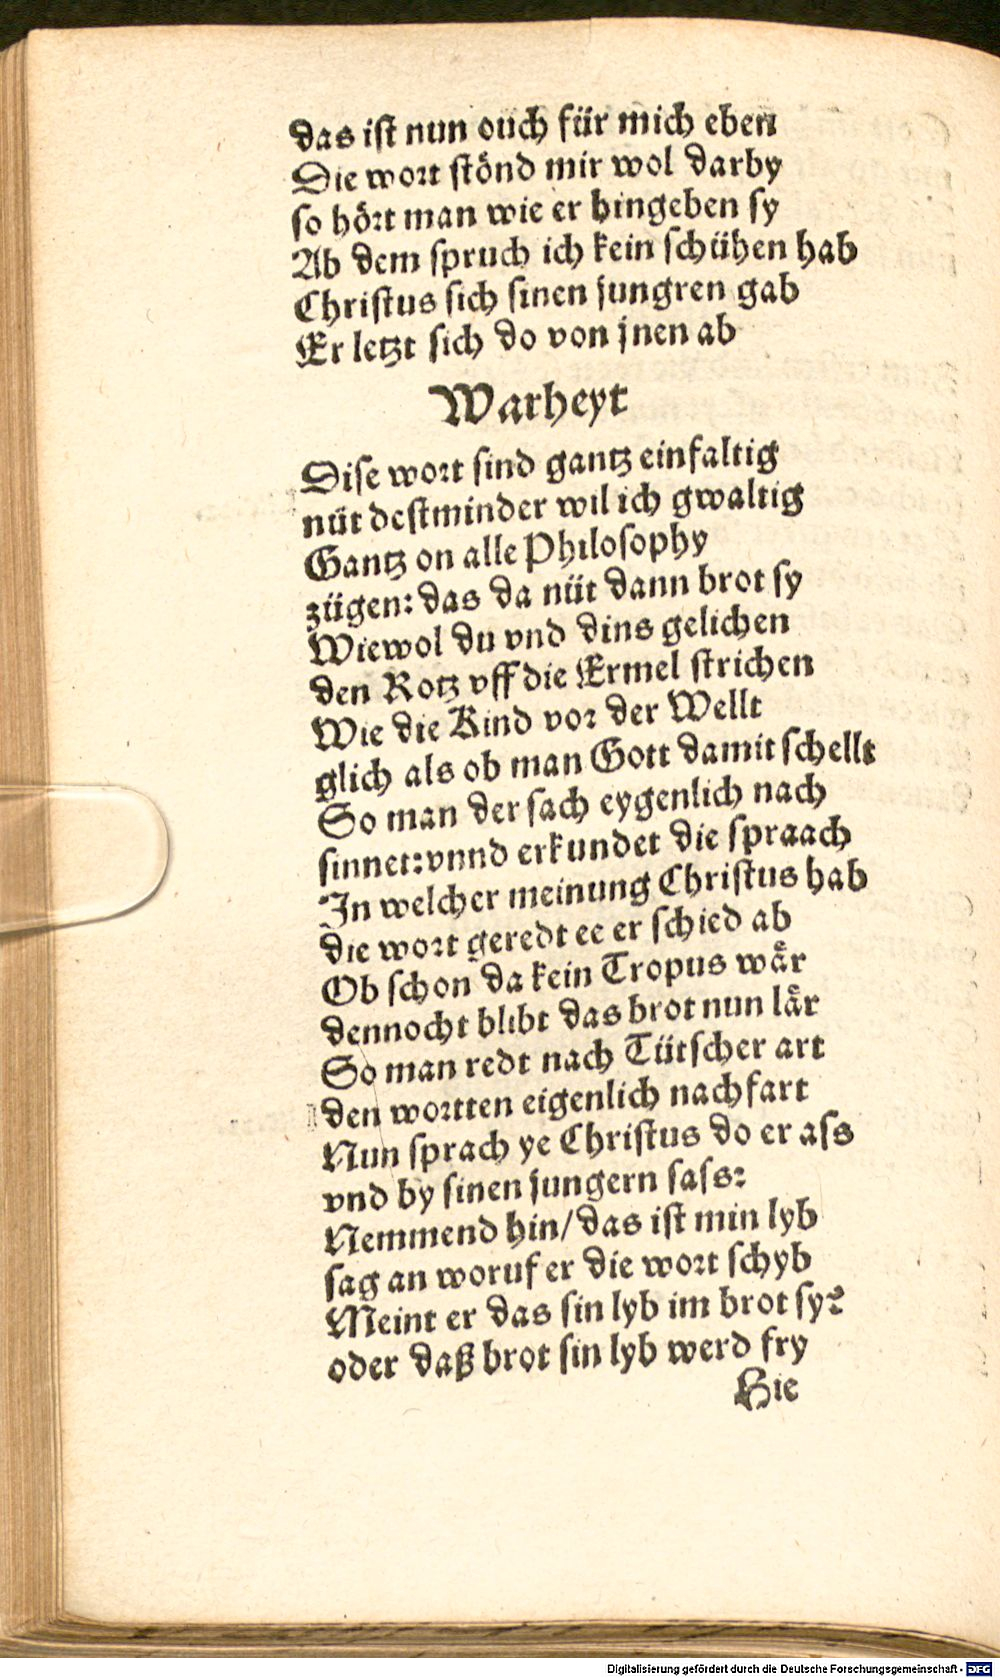 das ist nun ouch für mich eben
Die wort stönd mir wol darby
so hört man wie er hingeben sy
Ab dem spruch ich kein schühen hab
Christus sich sinen jungren gab
Er letzt sich do von jnen ab
Warheyt
Dise wort sind gantz einfaltig
nüt destminder wil ich gwaltig
Gantz on alle Philosophy
zügen: das da nüt dann brot sy
Wiewol du vnd dins gelichen
den Rotz vff die Ermel strichen
Wie die Kind vor der Wellt
glich als ob man Gott damit schellt
So man der sach eygenlich nach
sinnet: vnnd erkundet die spraach
In welcher meinung Christus hab
die wort geredt ee er schied ab
Ob schon da kein Tropus wår
dennocht blibt das brot nun lår
So man redt nach Tütscher art
den wortten eigenlich nachfart
Nun sprach ye Christus do er ass
vnd by sinen jungern sass:
Nemmend hin/ das ist min lyb
sag an woruf er die wort schyb
Meint er das sin lyb im brot sy?
oder daß brot sin lyb werd fry
Hie
Digitalisierung gefördert durch die Deutsche Forschungsgemeinschaft - DFG